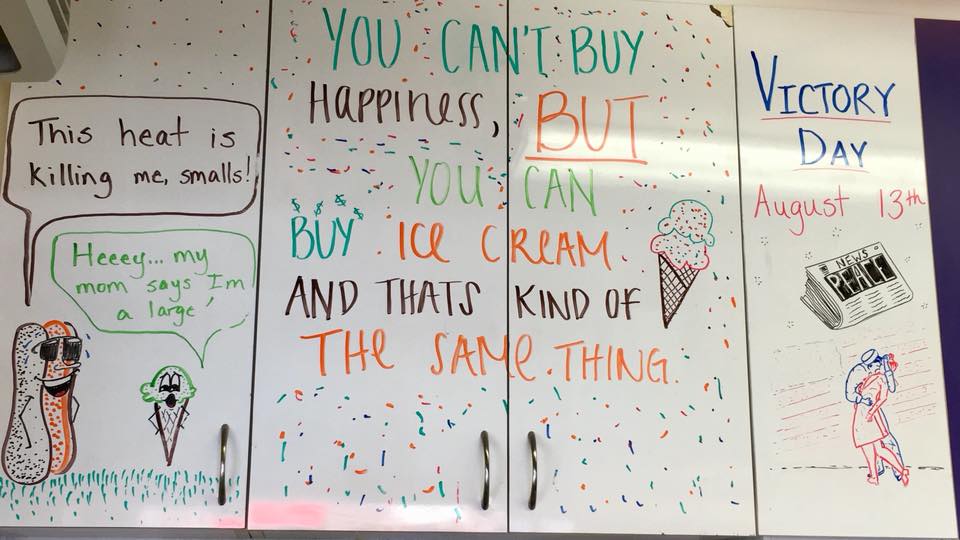 This heat is
killing me, smalls!
Heeey... my
mom says I'm
a large
YOU CAN'T BUY
HAPPINESS, BUT
YOU CAN
BUY ICE CREAM
AND THATS KIND OF
THE SAME THING.
VICTORY
DAY
August 13th
NEWS
PEACE